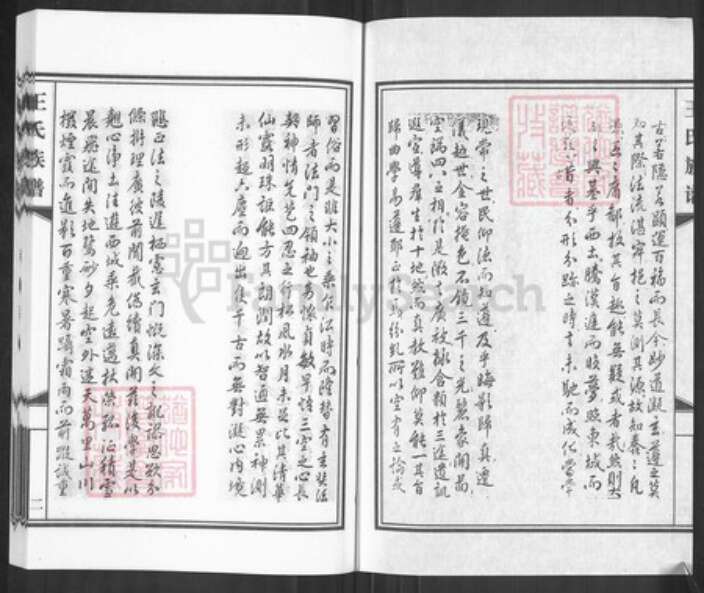 王氏族譜
古若隱若顯運百福而長今妙道凝玄遵之莫
知其際法流湛寂挹之莫測其源故知蠢蠢凡
愚區區庸鄙投其旨趣能無疑或者哉然則大
教之興基乎西土騰漢庭而皎夢照東域而
流慈昔者分形分跡之時言未馳而成化當常
現常之世民仰德而知遵及乎晦影歸真遷
儀越世金容掩色不鏡三千之光麗象開圖
空端四八之相於是微言廣被拯含類於三途遺訓
遐宣導群生於十地然而真教難仰莫能一其旨
歸曲學易遵邪正於焉紛糾所以空有之論或
習俗而是非大小之乘乍沿時而隆替有玄奘法
師者法門之領袖也幼懷貞敏早悟三空之心長
契神情先苞四忍之行松風水月未足比其清華
仙露明珠詎能方其朗潤故以智通無累神測
未形超六塵而迥出隻千古而無對凝心內境
悲正法之陵遲栖慮玄門慨深文之訛謬思欲分
條析理廣彼前聞截偽續真開茲後學是以
翹心淨土往遊西域乘危遠邁杖策孤征積雪
晨飛途間失地驚砂夕起空外迷天萬里山川
撥煙霞而進影百重寒暑躡霜雨而前蹤誠重
王氏族譜
二
FamilySearch